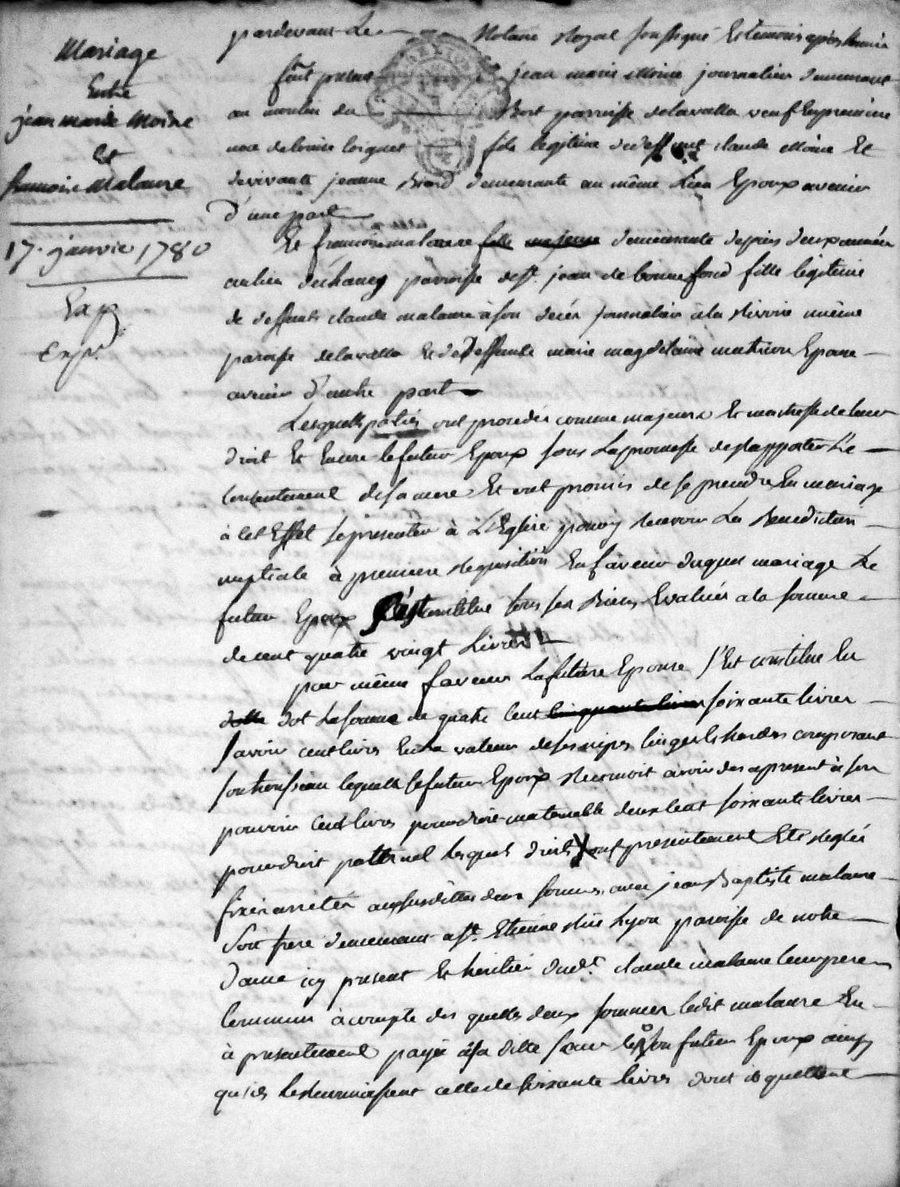 Mariage
Entre
jean marie Moine
Et
francoise Malaure
17. janvie 1780
Exp
Exp.
pardevant Le Notaire Royal soussigné Et temoins apres
fût present jean marie Moine journalier demeurant
au moulin du Bost parroisse delavalla veuf Enpremiere
noce delouise loiquet fils legitime de deffunt claude Moine Et
devivante jeanne demeurante au même Lieu Epoux avenir
D'une part
Et francoise malaure fille majeure demeurante depuis deux années
au lieu parroisse de St. jean de bonnefond fille legitime
de deffunts claude malaure à son decès journalier a la Rivoire même
paroisse delavalla Et de Deffunte marie magdelaine Epouse
avenir D'autre part
Lesquelles parties ont proceder comme majeurs Et maitresse de leur
droit Et Encore le futur Epoux sous Lapromesse de Rapporter Le
Consentement de sa mere Et ont promis de se prendre En mariage
à cet Effet se presenter à L'Eglise pour y Recevoir La Benediction
nuptiale à premiere Requisition En faveur duquel mariage Le
futur Epoux s'est constitué tous ses Biens Evalués a la somme
de cent quatre vingt Livres
par même faveur La future Epouse s'Est constitué En
dot La somme de quatre cent cinquante livres soixante livres
savoir cent livres En la valeur de ses nipes linges Et hardes composant
son trousseau lequelle le futur Epoux Reconnoit avoir des apresent à son
pouvoir Cent livres pour droit maternelle deux cent soixante livres
pour droit patternel Lesquels droits ont presentement Eté Reglés
fixés arretés aux susdittes deux sommes avec jean Baptiste malaure
Son frere demeurant a St. Etienne Rue Lyon paroisse de notre
Dame icy present Et heritier dudt. claude malaure leur pere
Commun à compte des quelles deux sommes ledit malaure En
à presentement payée à sa ditte sœur Et son futur Epoux ainsy
qu'ils Le Reconnoissent celle de soixante livres dont ils quittent